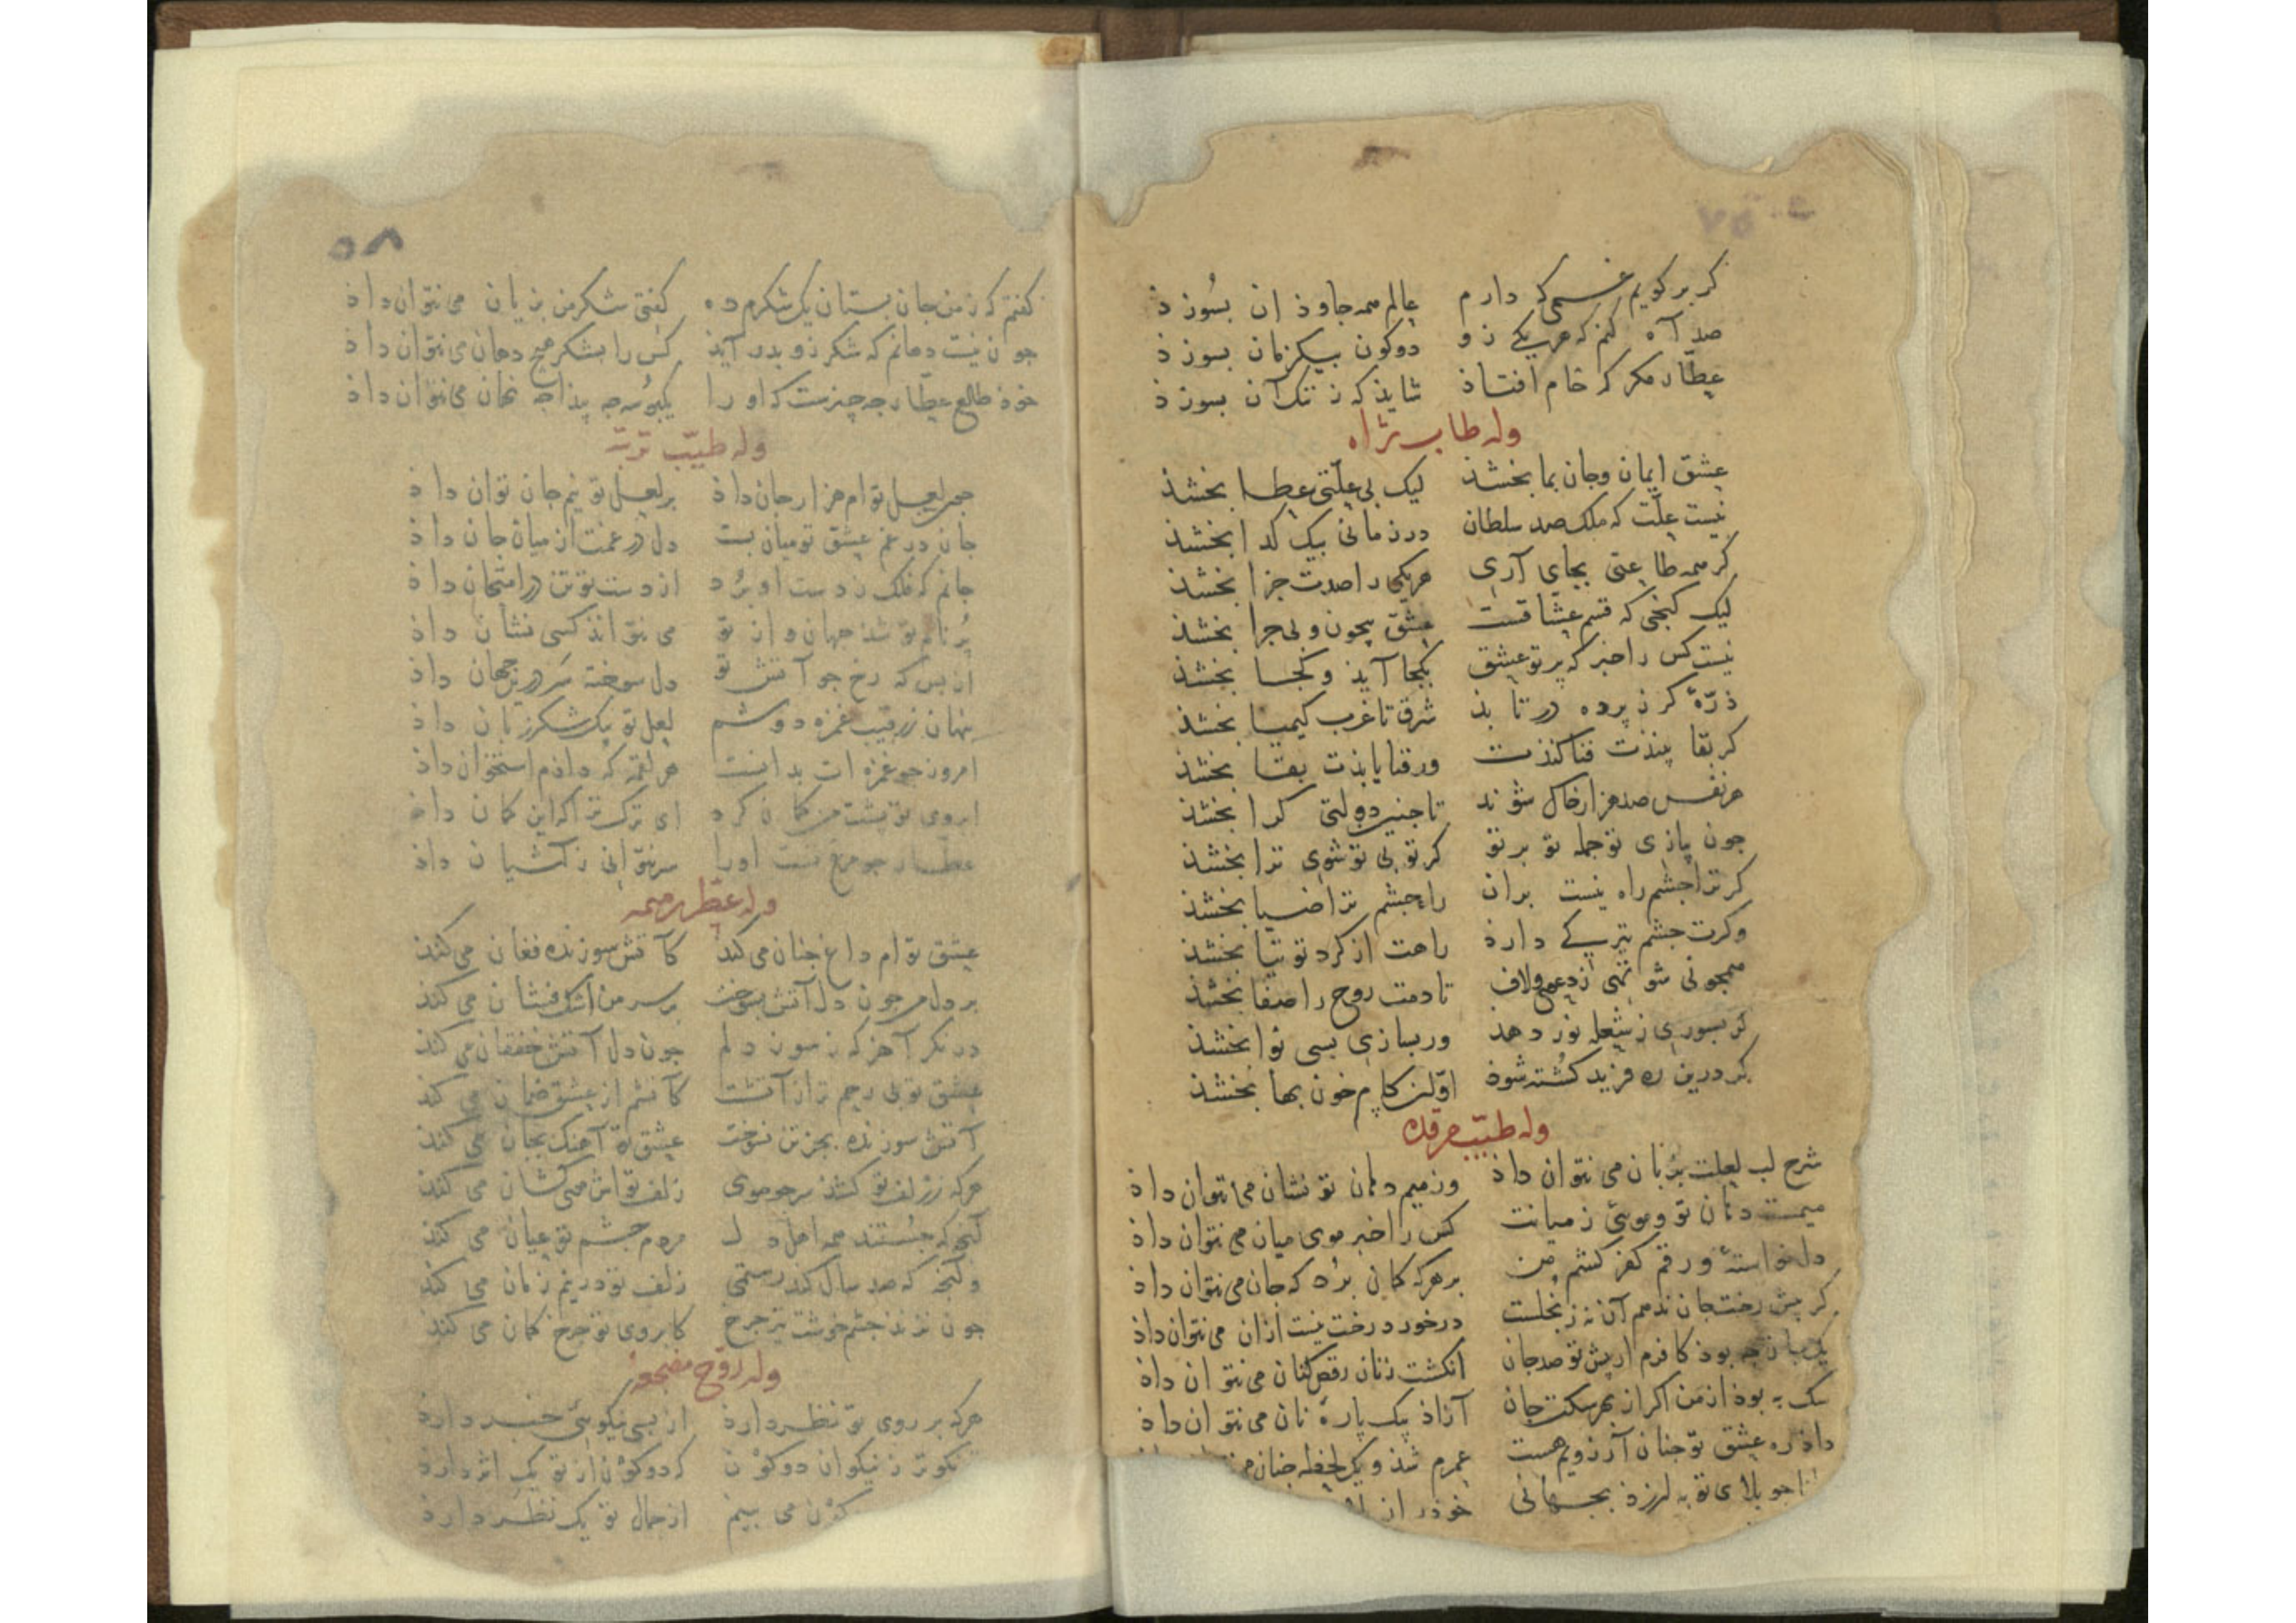 گر برگویم غمی که دارم عالم همه جاوذان بسوزذ
صد آه کنم که هریکی زو دوکون بیکزمان بسوزذ
عطّار مکر که خام افتاذ شایذ که ز ننک آن بسوزذ
وله طاب ثراه
عشق ایمان وجان بما بخشذ لیک بی علّتی عطا بخشذ
نیست علّت که ملک صد سلطان در زمانی بیک کدا بخشذ
کر همه طاعتی بجای آری هریکی را صدت جزا بخشذ
لیک کنجی که قسم عشّاقست عشق بیچون و بی جرا بخشذ
نیست کس را خبر که پرتو عشق بکجا آیذ و کجا بخشذ
ذرّهٔ کر ز پرده در تابذ شرق تا غرب کیمیا بخشذ
کر بقا بینذت فنا کنذت ور فنا یابذت بقا بخشذ
هر نفس صد هزار خاک شوند تا جنین دولتی کرا بخشذ
جون بازی تو جمله تو بر تو کر تو بی تو شوی ترا بخشذ
کر ترا جشم راه نیست بران راه جشم ترا ضیا بخشذ
وکرت جشم تیرکی دارذ راهت از کرد توتیا بخشذ
همجو نی شو تهی ز دعوی ولاف تا دمت روح را صفا بخشذ
کر بسوزی ز شعله نور دهذ ور بسازی بسی نوا بخشذ
کر درین ره فرید کشته شوذ اوّلین کام خون بها بخشذ
وله طیّب مرقده
شرح لب لعلت بزبان می نتوان داذ وز میم دهان تو نشان می نتوان داذ
میمست دهان تو و مویی ز میانت کس را خبر موی میان می نتوان داذ
دل خواستهٔ و رقم کفر کشم من بر هرکه کمان برد که جان می نتوان داذ
کر پیش رخت جان ندهم آن نه ز بخلست در خورد رخت نیست ازان می نتوان داذ
یک جان جه بوذ کافرم ار پیش تو صد جان انکشت زنان رقص کنان می نتوان داذ
سک به بوذ از من اکر از بهر سکت جان آزاذ بیک پارهٔ نان می نتوان داذ
داذ ره عشق تو جنان آرزویم هست عمرم شذ و یک لحظه جنان می
جو بلای تو به لرزذ بجهانی خوذ را ز
۵۸
کفتم که ز من جان بستان یک شکرم ده کفتی شکر من بزیان می نتوان داذ
جون نیست دهانم که شکر زو بدر آیذ کس را بشکر هیچ دهان می نتوان داذ
خوذ طالع عطّار جه چیزست که او را یکبوسه جه پیذا جه نهان می نتوان داذ
وله طیّب تربته
لعل تو ام هزار جان داذ بر لعل تو نیم جان توان داذ
جان در غم عشق تو میان بست دل در غمت از میان جان داذ
جانم که فلک ز دست او برد از دست تو تن در امتحان داذ
پر نام تو شذ جهان و از تو می نتوانذ کسی نشان داذ
ای بس که رخ جو آتش تو دل سوخته سر درین جهان داذ
بنهان ز رقیب غمزه دوشم لعل تو یک شکر زبان داذ
امروز جو غمزه ات بدانست هر لقمه که داذم استخوان داذ
ابروی تو پشت من کمان کرد ای ترک ترا که این کمان داذ
عطّار جو مرغ تست او را سر نتوانی ز آشیان داذ
وله عطّر ضریحه
عشق تو ام داغ جنان می کند کآتش سوزنده فغان می کنذ
بر دل من جون دل آتش بسوخت بر سر من اشک فشان می کنذ
در نکر آخر که ز سوز دلم جون دل آتش خفقان می کنذ
عشق تو بی رحم تر از آتشست کآتشم از عشق ضمان می کند
آتش سوزنده بجز تن نسوخت عشق تو آهنک بجان می کنذ
هرکه ز زلف تو کشذ سر جو موی زلف تواش موی کشان می کنذ
آنچه که جستند همه اهل دل مردم جشم تو عیان می کند
وآنچه که صد سال کند رستمی زلف تو در نیم زمان می کند
جون نزند جشم خوشت تیر جرخ کابروی تو جرخ کمان می کند
وله روّح مضجعه
هرکه بر روی تو نظر دارد از بسی نیکوئی خبر دارذ
نکوتر ز نیکوان دوکون که دوکون از تو یک اثر دارذ
کون می بینم از جمال تو یک نظر دارذ